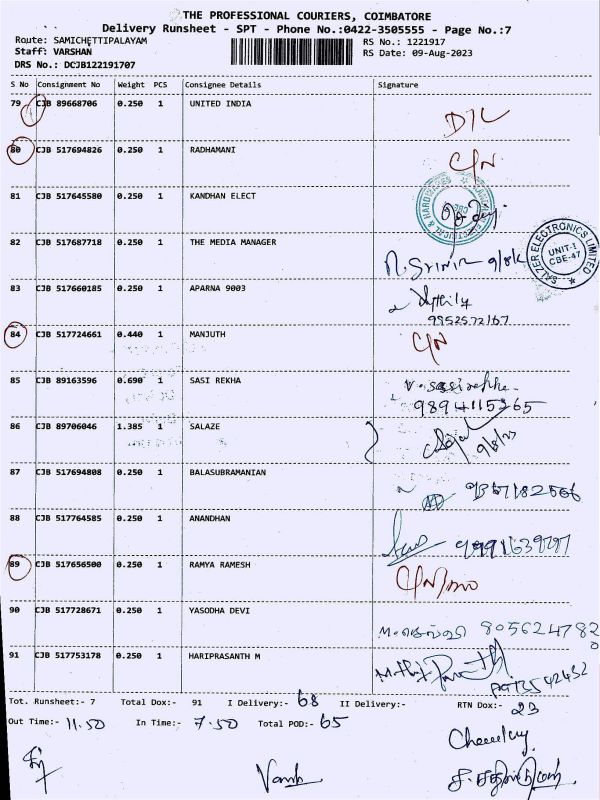 THE PROFESSIONAL COURIERS, COIMBATORE
Delivery Runsheet - SPT - Phone No.:0422-3505555 - Page No.:7
Route: SAMICHETTIPALAYAM
RS No.: 1221917
Staff: VARSHAN
RS Date: 09-Aug-2023
DRS No.: DCJB122191707
S No Consignment No Weight PCS Consignee Details Signature
79 CJB 89668706 0.250 1 UNITED INDIA D/L
80 CJB 517694826 0.250 1 RADHAMANI C/N
81 CJB 517645580 0.250 1 KANDHAN ELECT
82 CJB 517687718 0.250 1 THE MEDIA MANAGER
SALZER ELECTRONICS LIMITED
UNIT-I
CBE-47
83 CJB 517660185 0.250 1 APARNA 9003
9952572167
84 CJB 517724661 0.440 1 MANJUTH C/N
85 CJB 89163596 0.690 1 SASI REKHA V. Sasirekha
9894115265
86 CJB 89706046 1.385 1 SALAZE 9/8/23
87 CJB 517694808 0.250 1 BALASUBRAMANIAN
88 CJB 517764585 0.250 1 ANANDHAN
89 CJB 517656500 0.250 1 RAMYA RAMESH
90 CJB 517728671 0.250 1 YASODHA DEVI 8056247820
91 CJB 517753178 0.250 1 HARIPRASANTH M
Tot. Runsheet:- 7 Total Dox:- 91 I Delivery:- 68 II Delivery:- RTN Dox:- 23
Out Time:- 11.50 In Time:- 7.50 Total POD:- 65